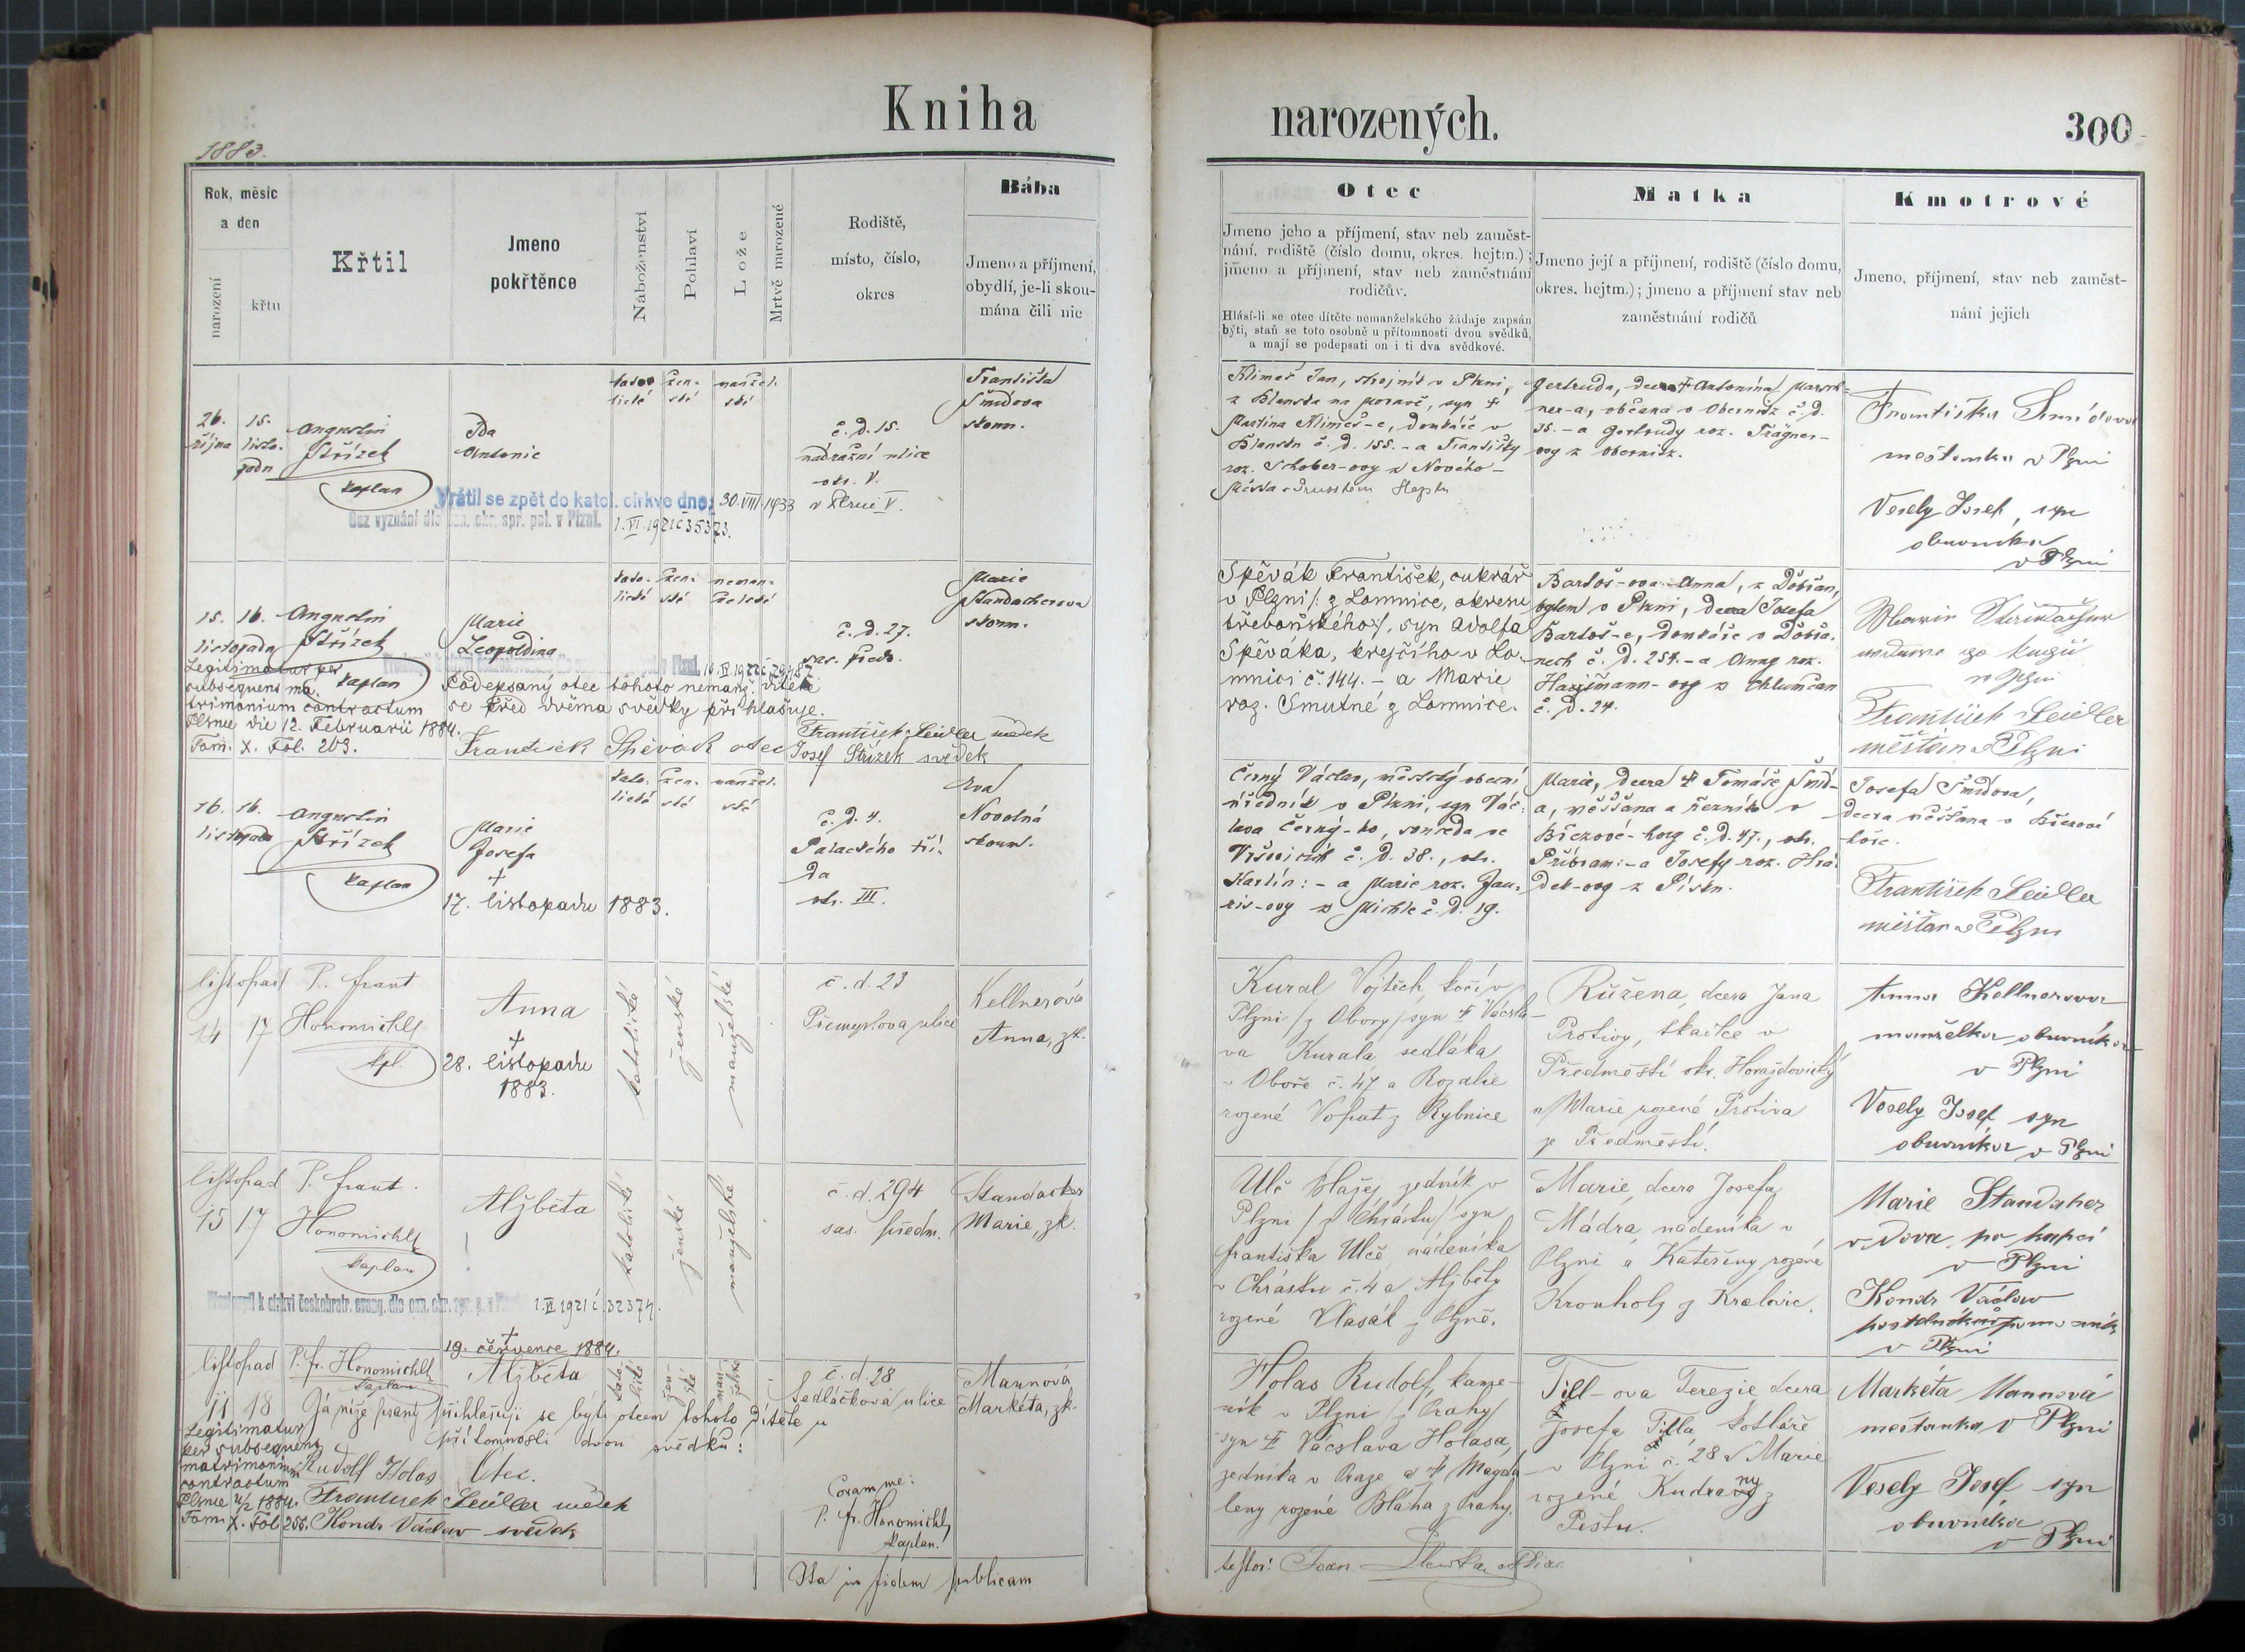 Kniha
narozených.
300
1883.
Rok, měsíc
a den
narození
křtu
Křtil
Jmeno
pokřtěnce
Náboženství
Pohlaví
Lože
Mrtvě narozené
Rodiště,
místo, číslo,
okres
Bába
Jmeno a příjmení,
obydlí, je-li skou-
mána čili nic
Otec
Jmeno jeho a příjmení, stav neb zaměst-
nání, rodiště (číslo domu, okres. hejtm.);
jmeno a příjmení, stav neb zaměstnání
rodičův.
Hlásí-li se otec dítěte nemanželského žádaje zapsán
býti, staň se toto osobně u přítomnosti dvou svědků,
a mají se podepsati on i ti dva svědkové.
Matka
Jmeno její a příjmení, rodiště (číslo domu,
okres. hejtm.); jmeno a příjmení stav neb
zaměstnání rodičů
Kmotrové
Jmeno, příjmení, stav neb zaměst-
nání jejich
26. 15.
října listo-
padu
Augustin
Střízek
kaplan
Ida
Antonie
kato-
lické
žen-
ské
manžel-
ské
č. d. 15.
nádražní ulice
okr. V.
v Plzni V.
Františka
Šmídova
skoum.
Vrátil se zpět do katol. církve dne: 30. VIII. 1933
Bez vyznání dle ozn. okr. spr. pol. v Plzni. 1. VI. 1921 č 35373.
Klimeš Jan, strojník v Plzni,
z Blanska na Moravě, syn †
Martina Klimeš-e, domkáře v
Blansku č. d. 155. - a Františky
roz. Schober-ovy z Nového-
Města
Gertruda, dcera † Antonína
ner-a, občana v Obernitz č. d.
35. - a Gertrudy roz. Trägner-
ovy z Obernitz.
Františka Šmídova
měštanka v Plzni
Vesely Josef, syn
obuvníka
v Plzni
15. 16.
listopadu
Augustin
Střízek
kaplan
Marie
Leopoldina
kato-
lické
žen-
ské
neman-
želské
č. d. 27.
sas. předm.
Marie
Standacherova
skoum.
Legitimatur per
subsequens ma-
trimonium contractum
Plsnae die 12. Februarii 1884.
Tom. X. Fol. 203.
Podepsaný otec tohoto nemanž. dítěte
se před dvěma svědky přihlašuje.
František Spěvák otec
František Seidler svědek
Josef Střízek svědek
Spěvák František, cukrář
v Plzni /: z Lomnice, okresu
třeboňského :/, syn Adolfa
Spěváka, krejčího v Lo-
mnici č. 144. - a Marie
roz. Smutné z Lomnice.
Bartoš-ova Anna, z Dobřan,
bytem v Plzni, dcera Josefa
Bartoš-e, domkáře v Dobřa-
nech č. d. 254. - a Anny roz.
ovy z Chlumčan
č. d. 24.
František Seidler
měšťan v Plzni
16. 16.
listopadu
Augustin
Střízek
kaplan
Marie
Josefa
†
17. listopadu 1883.
kato-
lické
žen-
ské
manžel-
ské
č. d. 4.
Palackého tří-
da
okr. III.
Eva
Novotná
skoum.
Černý Václav, městský obecní
úředník v Plzni, syn Vác-
lava Černý-ho, souseda ve
Vršovicích č. d. 38., okr.
Karlín: - a Marie roz. Jan-
ris-ovy z Michle č. d. 19.
Marie, dcera † Tomáše Šmíd-
a, měšťana a řezníka v
Březové-hory č. d. 47., okr.
Příbram: - a Josefy roz. Hrá-
dek-ovy z Písku.
Josefa Šmídova,
dcera měšťana v Březové
hoře.
František Seidler
měšťan v Plzni
listopad
14 17
P. Frant
Honomichl
kpl.
Anna
†
28. listopadu
1883.
katolické
ženské
manželské
č. d. 23
Přemyslova ulice
Kellnerová
Anna, zk.
Kural Vojtěch, kočí v
Plzni / z Obory / syn † Václa-
va Kurala sedláka
v Oboře č. 47 a Rozalie
rozené Vopat z Rybnice
Růžena, dcera Jana
Protivy, tkadlce v
Předměstí okr. Horažďovický
a Marie rozené Protiva
ze Předměstí.
Anna Kellnerova
manželka obuvníka
v Plzni
Vesely Josef syn
obuvníka v Plzni
listopad
15 17
P. Frant.
Honomichl
kaplan
Alžběta
katolické
ženské
manželské
č. d. 294
sas. předm.
Standacher
Marie, zk.
Přestoupil k církvi českobratr. evang. dle ozn. okr. spr. p. v Plzni 1. II 1921 č. 32374.
Ulč Blažej zedník v
Plzni / z Chrástu / syn
Františka Ulče, nádeníka
v Chrástu č. 4 a Alžběty
rozené Vlasák z Plzně.
Marie, dcera Josefa
Mádra, nádeníka v
Plzni a Kateřiny rozené
Kronholz z Kralovic.
Marie Standacher
vdova po kupci
v Plzni
Kondr Václav
kostelnický pomocník
v Plzni
listopad
11 18
P. Fr. Honomichl
kaplan
†
19. července 1884.
Alžběta
kato-
lické
žen-
ské
man-
želské
č. d. 28
Sedláčková ulice
Mannová
Markéta, zk.
Já níže psaný přihlašuji se býti otcem tohoto dítěte u
přítomnosti dvou svědků:
Legitimatur
per subsequens
matrimonium
contractum
Plsnae 4/2 1884.
Tom. X. Fol 258.
Rudolf Holas Otec.
František Seidler svědek
Kondr Václav svědek
Coram me:
P. Fr. Honomichl
kaplan.
Ita in fidem publicam
Holas Rudolf, kame-
ník v Plzni / z Prahy /
syn † Václava Holasa,
zedníka v Praze a † Magda-
leny rozené Bláha z Prahy.
Till-ova Terezie dcera
Josefa Tilla, kotláře
v Plzni č. 28 a Marie
rozené Kudrny z
Peštu.
Markéta Mannová
mestanka v Plzni
Vesely Josef syn
obuvníka
v Plzni
testor: Joan.